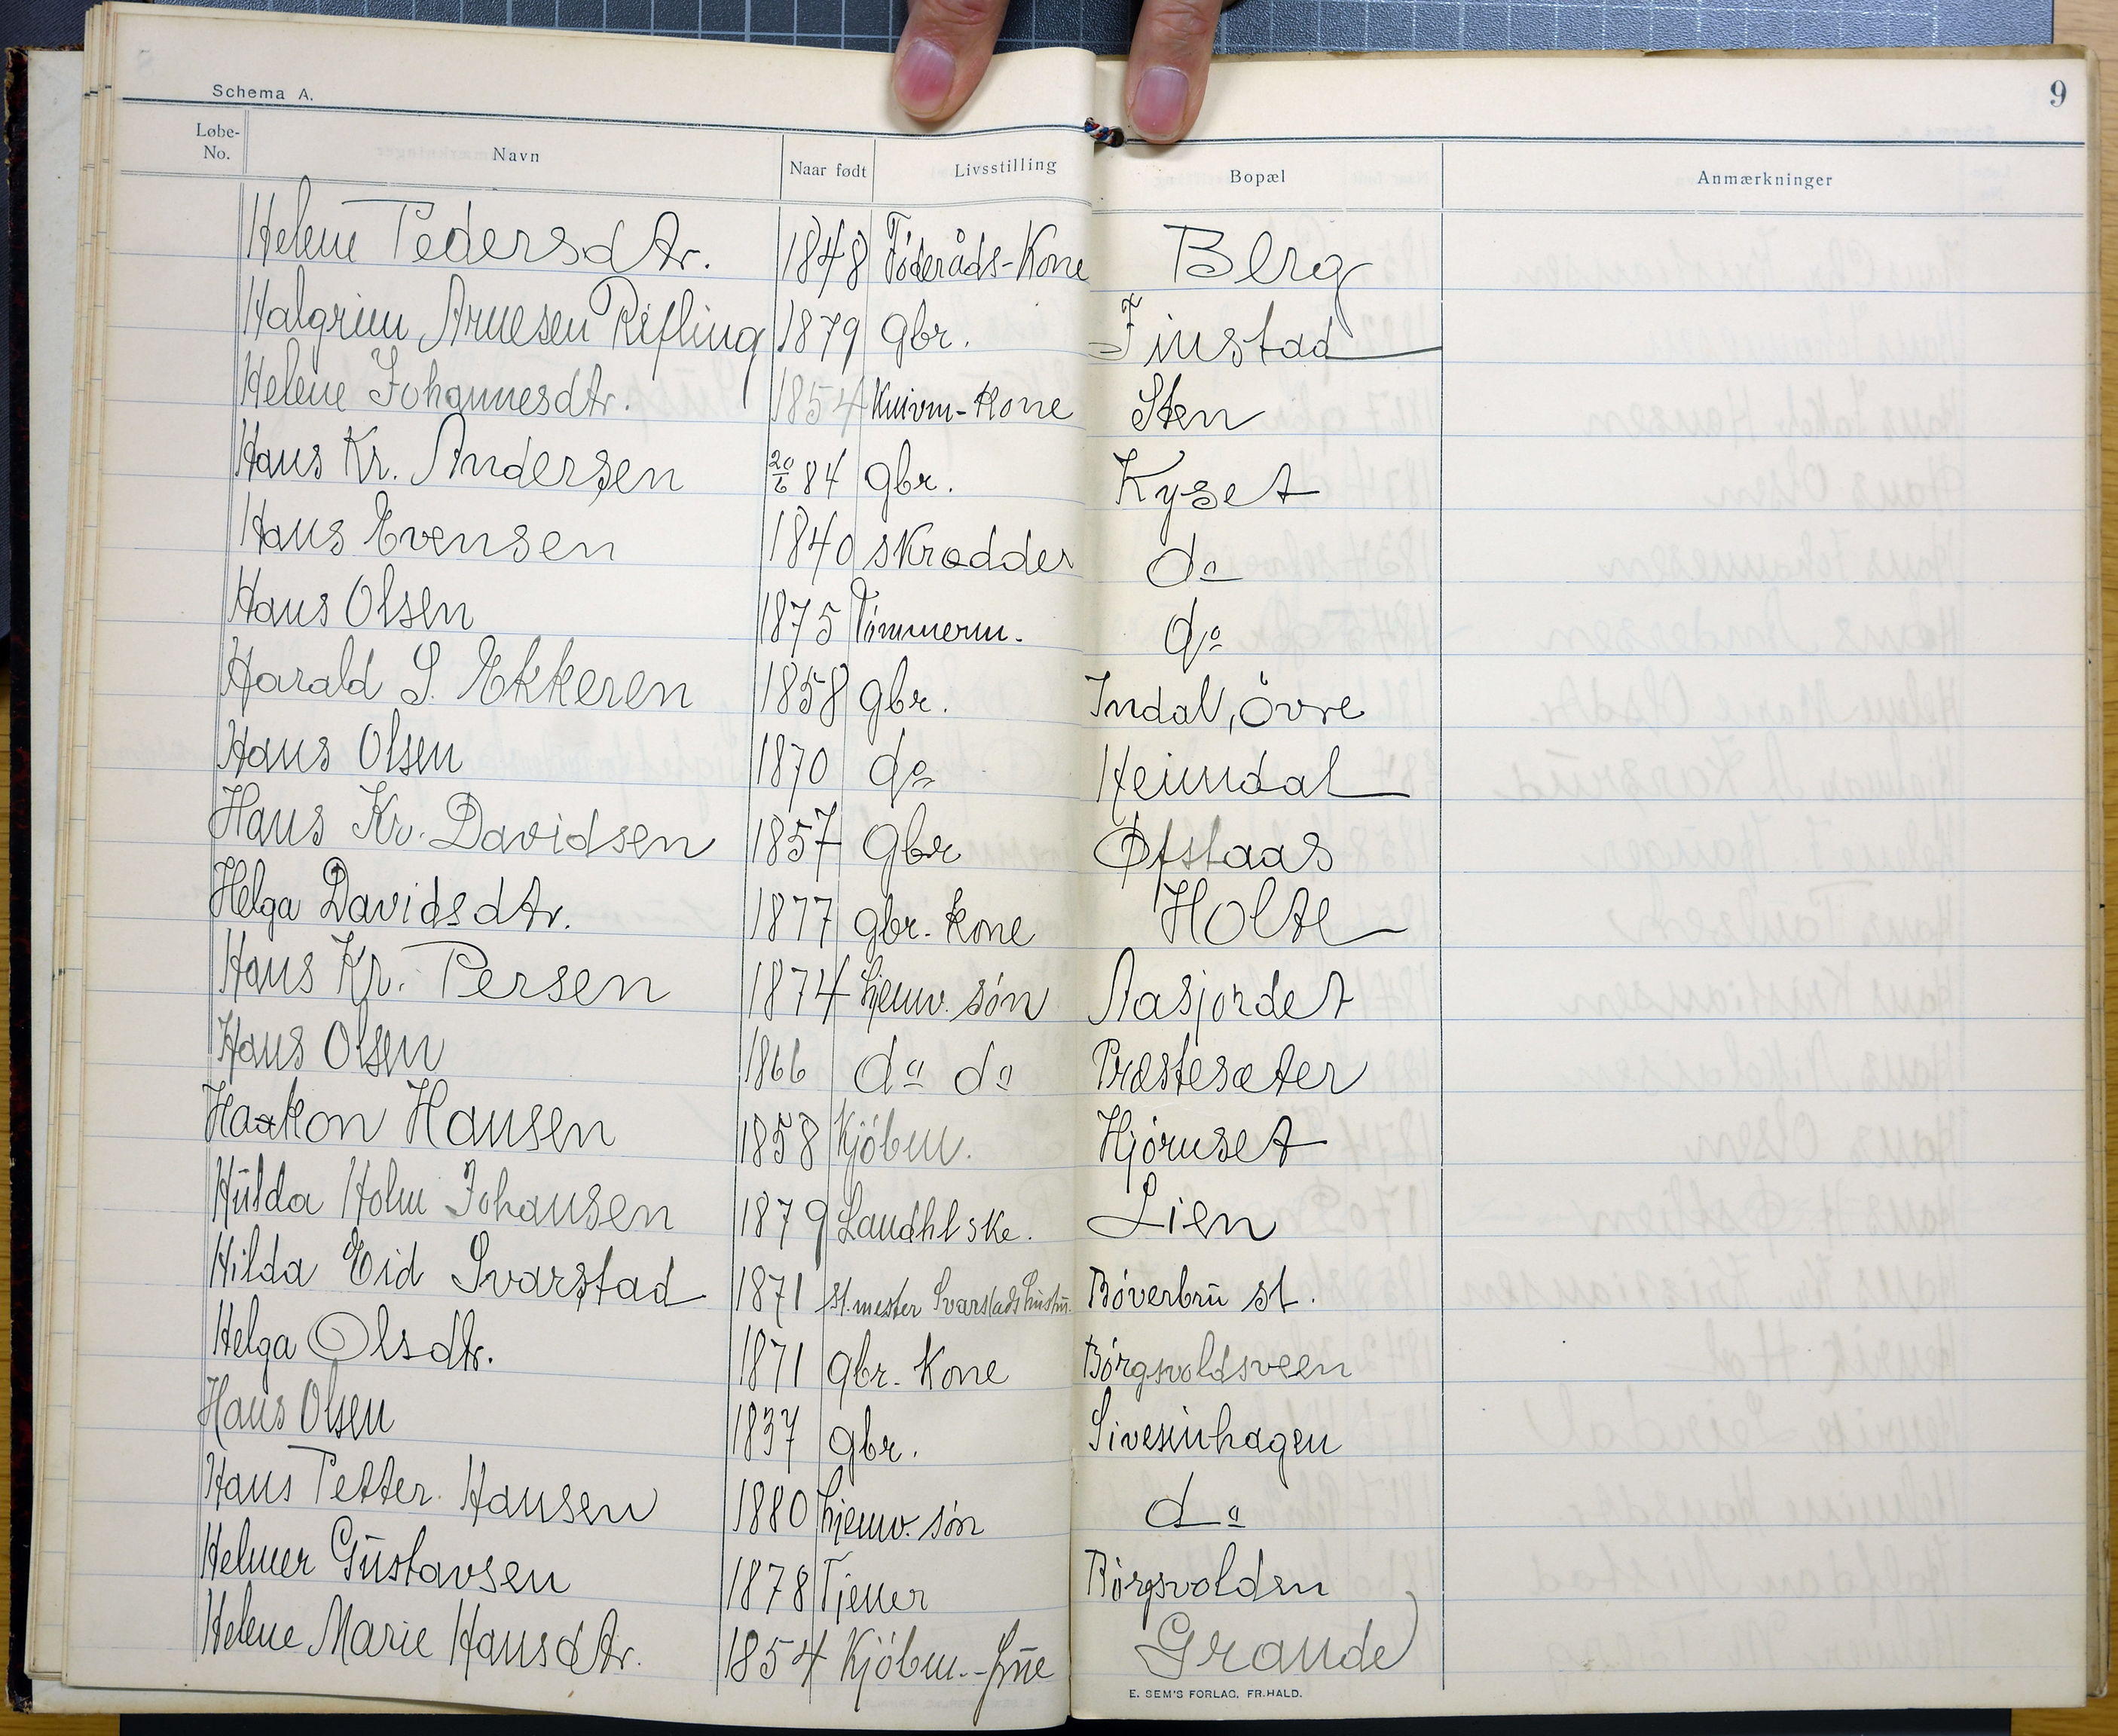 9
Schema A.
Løbe-No. Navn Naar født Livsstilling Bopæl Anmærkninger
Helene Pedersdtr. 1848 Föderåds-Kone Berg
Halgrim Arnesen Rifling 1879 gbr. Finstad
Helene Johannesdtr. 1854 Kone Sten
Hans Kr. Andersen 20/6 84 gbr. Kyset
Hans Evensen 1840 skrædder do
Hans Olsen 1875 Tömmerm. do
Harald S. Ekkeren 1858 gbr. Indal, övre
Hans Olsen 1870 do Heimdal
Hans Kr. Davidsen 1857 Gbr Øfstaas
Helga Davidsdtr. 1877 gbr. kone Holte
Hans Kr. Persen 1874 hjemv. sön Aasjordet
Hans Olsen 1866 do do Præstesæter
Haakon Hansen 1858 Kjöbm. Hjörnset
Hilda Holm Johansen 1879 Landhl ske. Lien
Hilda Eid Svarstad 1871 st.mester Svarstads hustru. Böverbru st.
Helga Olsdtr. 1871 gbr. Kone Börgsvoldsveen
Hans Olsen 1837 gbr. Sivesinhagen
Hans Petter Hansen 1880 hjemv. sön do
Helmer Gustavsen 1878 Tjener Börgsvolden
Helene Marie Hansdtr. 1854 Kjöbm.-frue Grande
E. SEM'S FORLAG, FR.HALD.